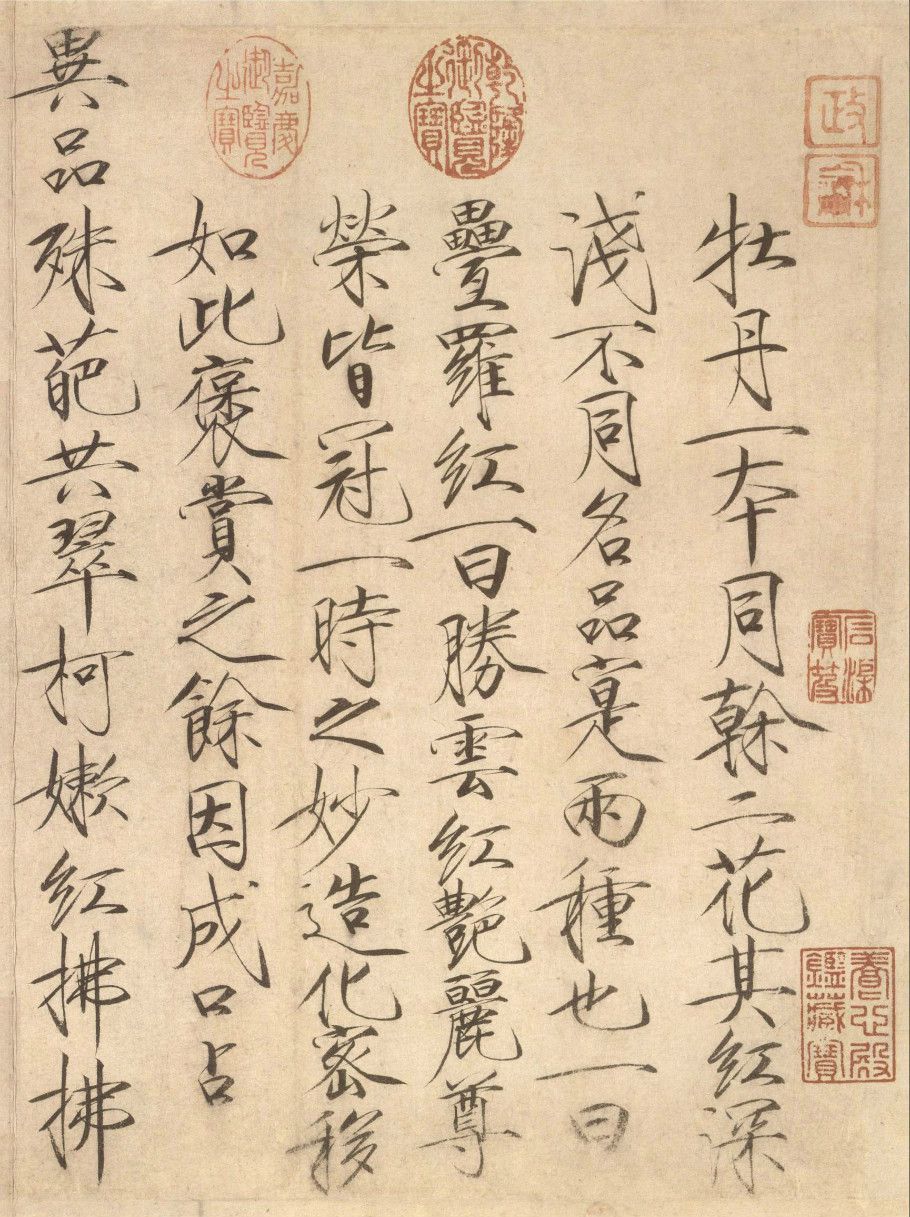 牡丹一本同榦二花其紅深
淺不同名品寔兩種也一曰
疊羅紅一曰勝雲紅艷麗尊
榮皆冠一時之妙造化密移
如此褒賞之餘因成口占
異品殊葩共翠柯嫩紅拂拂
政龢
乾隆御覽之寶
嘉慶御覽之寶
養心殿鑑藏寶